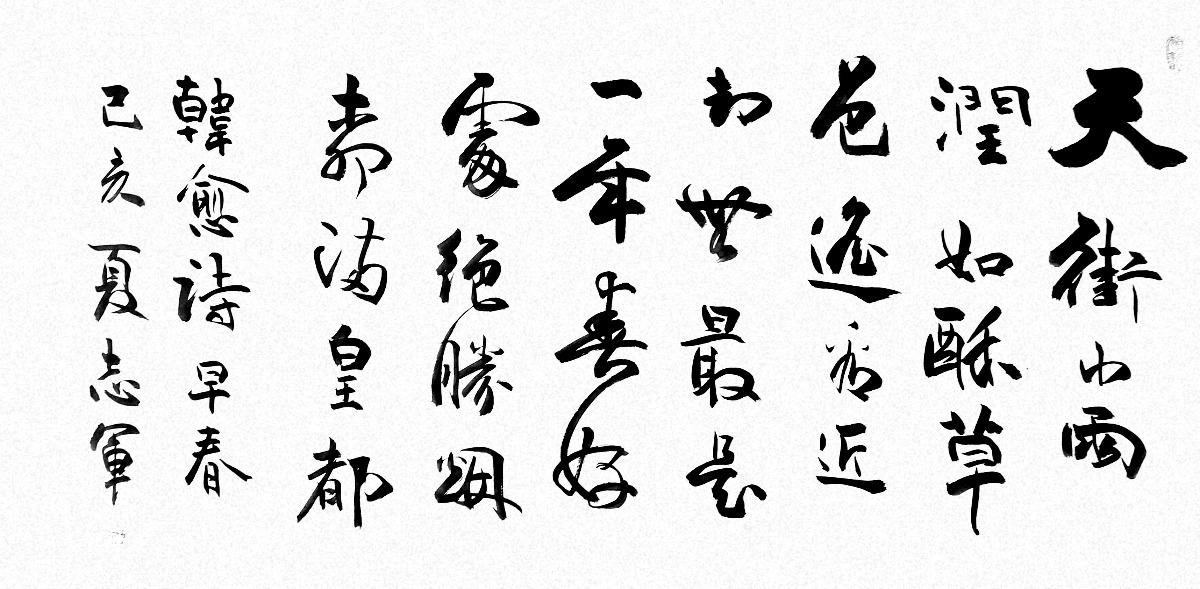 天街小雨
潤如酥草
色遙看近
却無最是
一年春好
處絶勝烟
柳滿皇都
韓愈詩早春
己亥夏志軍